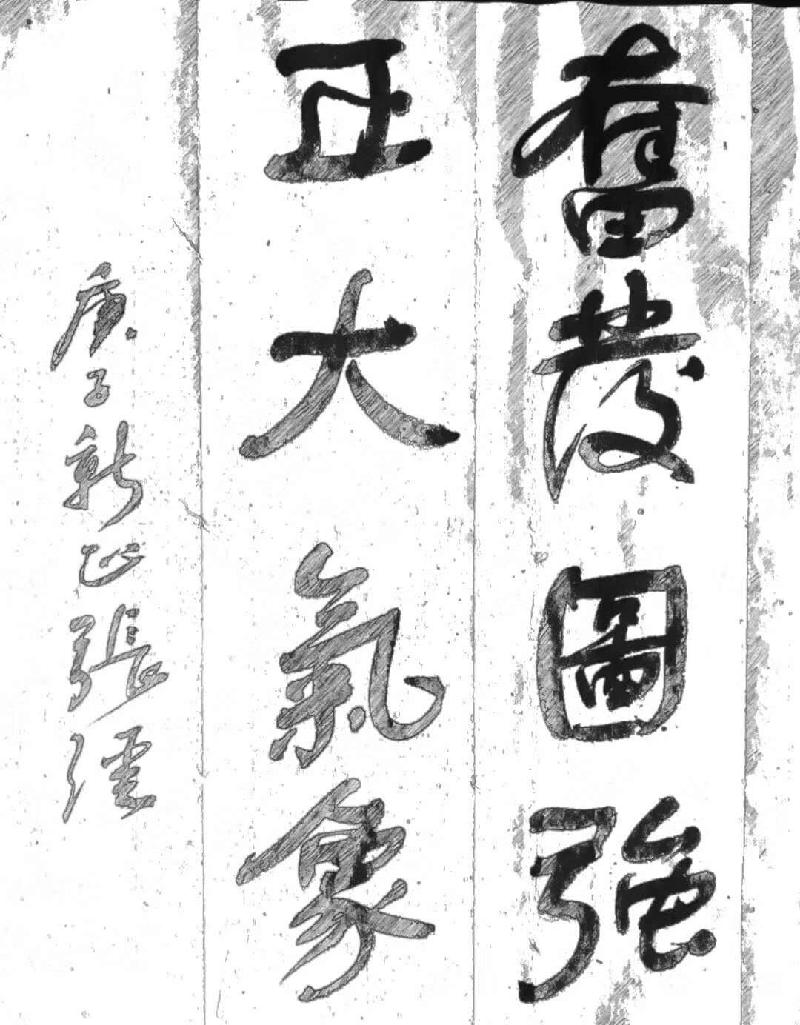 奮發圖強
正大氣象
庚子新正張